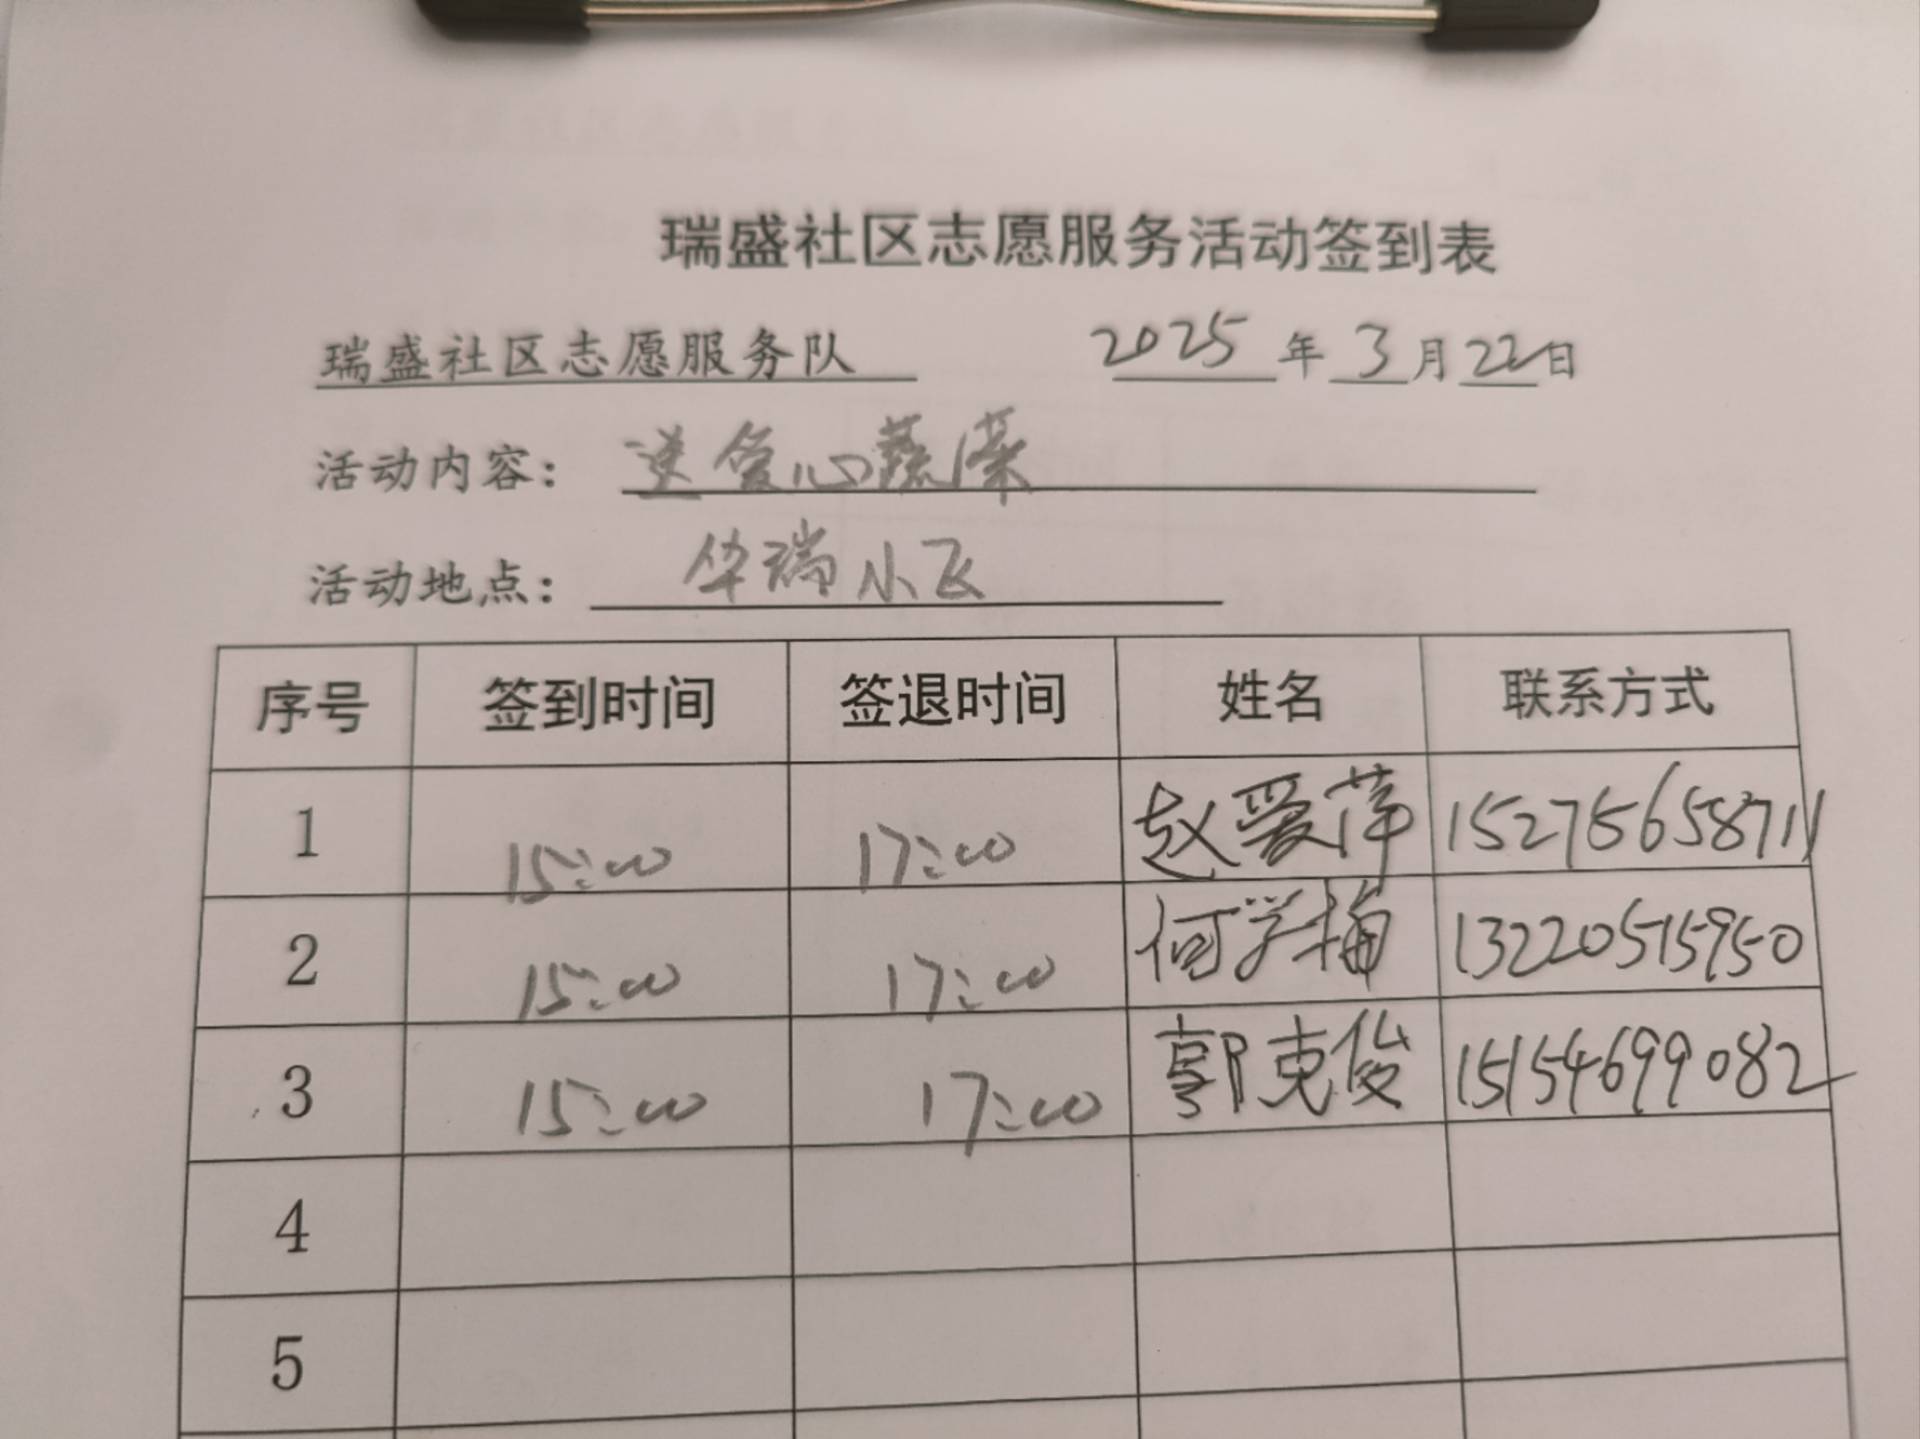 瑞盛社区志愿服务活动签到表
瑞盛社区志愿服务队 2025年3月22日
活动内容： 送爱心蔬菜
活动地点： 华瑞小区
序号 签到时间 签退时间 姓名 联系方式
1 15:00 17:00 赵爱萍 15275658711
2 15:00 17:00 何学梅 13220515950
3 15:00 17:00 郭克俊 15154699082
4
5